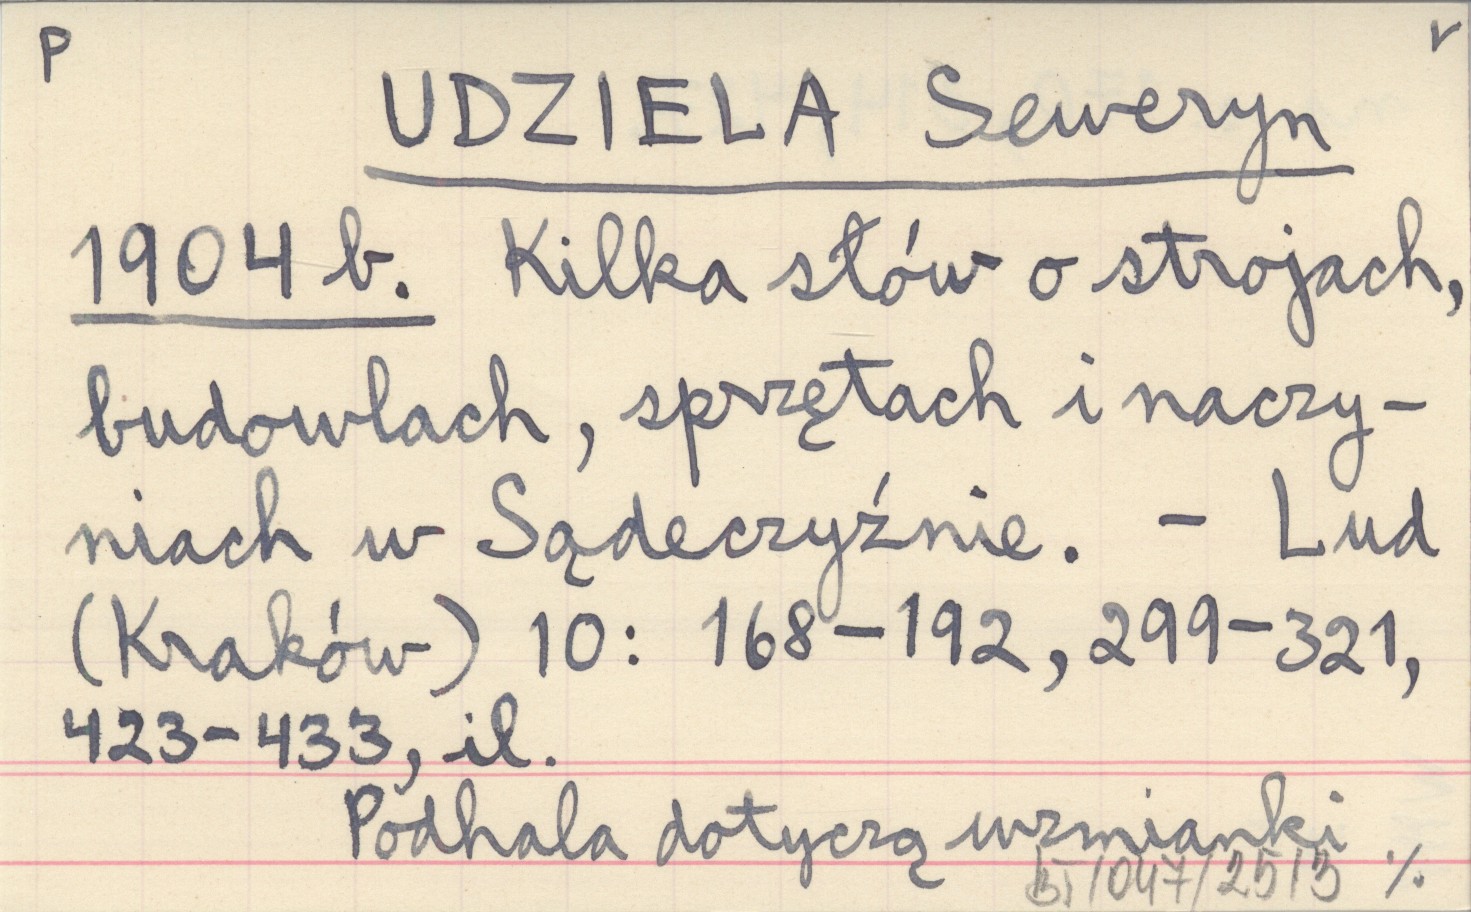 P v
UDZIELA Seweryn
1904 b. Kilka słów o strojach,
budowlach, sprzętach i naczy-
niach w Sądeczyźnie. - Lud
(Kraków) 10: 168-192, 299-321,
423-433, il.
Podhala dotyczą wzmianki
BT/047/2513 ·/.